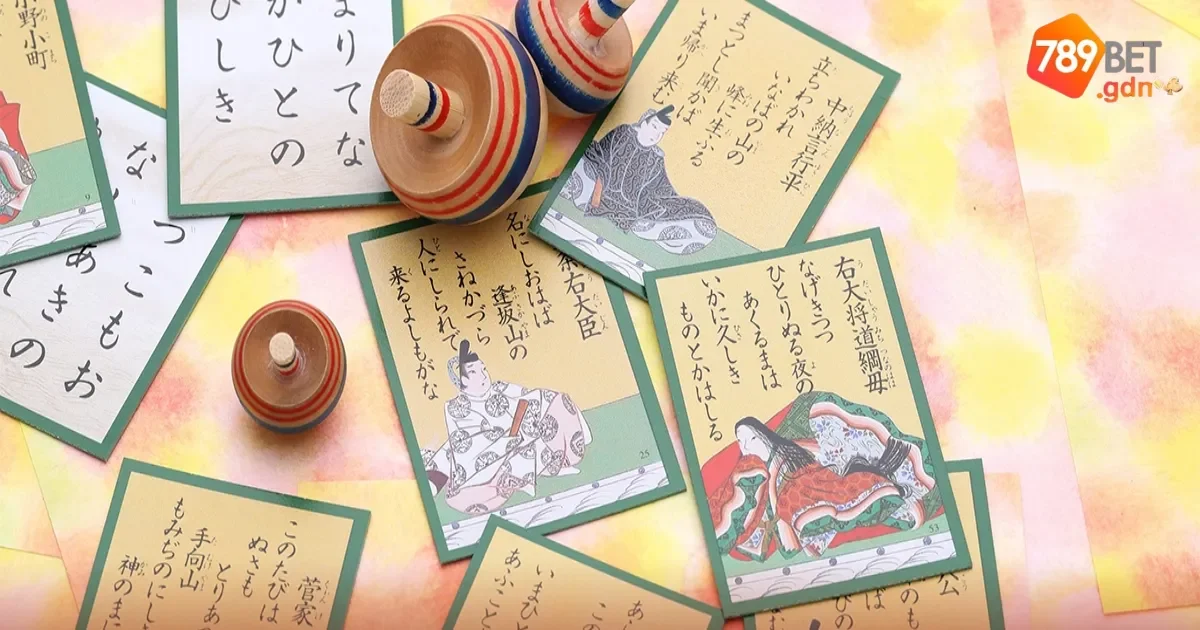 789BET
.gdn
小野小町
まりてな
がひとの
ひしき
なつ
こもお
あきの
中納言行平
立ちわかれ
いなばの山の
峰に生ふる
まつとし聞かば
いま帰り来む
条右大臣
名にしおはば
逢坂山の
さねかづら
人にしられで
来るよしもがな
25
右大将道綱母
なげきつつ
ひとりぬる夜の
あくるまは
いかに久しき
ものとかはしる
53
9
菅家
このたびは
ぬさも
とりあ
手向山
もみぢのにしき
神のまに
いまひ
あふこと
公